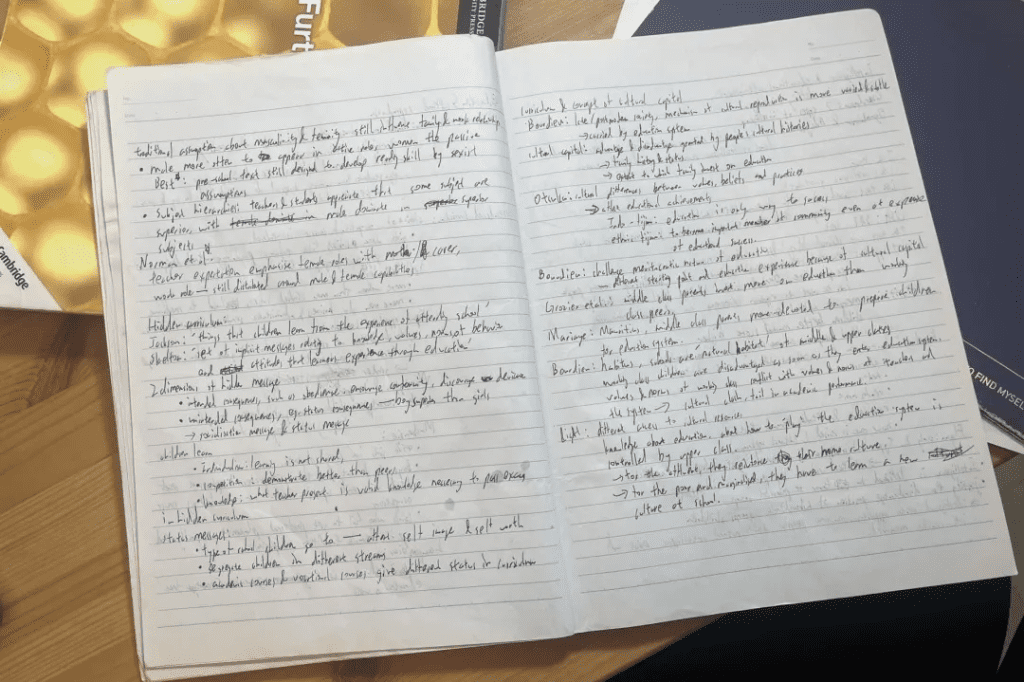 Furt
BRIDGE
TY PRESS
Cambridge
O FIND MYSEL
traditional assumption about masculinity & femininity still influence family & work relationship
• male more often to appear in active roles, women the passive
Best: pre-school text still designed to develop reading skill by sexist
assumptions
• Subject hierarchies: teachers & students appreciate that some subject are
superior, with male dominate in superior
subjects
Norman et al:
teacher expectation emphasise female roles with
work role — still distributed around male & female capabilities
Hidden curriculum:
Jackson: 'things that children learn from the experience of attending school'
Skelton: 'set of implicit messages relating to knowledge, values, norms of behavior
and attitudes that learners experience through education'
2 dimensions of hidden message
• intended consequences, such as obedience, encourage conformity, discourage deviance
• unintended consequences, eg. status consequences — boys superior than girls
→ socialisation message & status message
children learn
• Individualism: learning is not shared,
• competition: demonstrate better than peers
• knowledge: what teacher present is valid knowledge necessary to pass exams
in hidden curriculum
status messages:
• type of school children go to — affects self image & self worth
• segregise children in different streams
• academic courses & vocational courses give different status in curriculum
curriculum & concept of cultural capital
Bourdieu: late/postmodern society, mechanism of cultural reproduction is more varied & subtle
→ carried by education system
cultural capital: advantage & disadvantage granted by people's cultural histories
→ family history & status
→ extent to which family invest on education
Otsuka: cultural differences between values, beliefs and practices
→ affect educational achievements
Indo-fijian: education is only way to success
ethnic fijian: to become important member of community even at expense
of educational success.
Bourdieu: challenge meritocratic notion of education
— different starting point and education experience because of cultural capital
middle class parents invest more on education than working
class peers
Mauritius, middle class parents more devoted to prepare children
for education system.
Bourdieu: habitus, schools are 'natural habitat' of middle & upper classes
working class children are disadvantaged as soon as they enter education system,
values & norms of working class conflict with values & norms of teachers and
the system → cultural clash, fail in academic performance.
different access to cultural resources.
knowledge about education, about how to 'play' the education system is
controlled by upper class.
→ for the affluent, they reinforce their home culture.
→ for the poor and marginalised, they have to learn a new
culture of school.